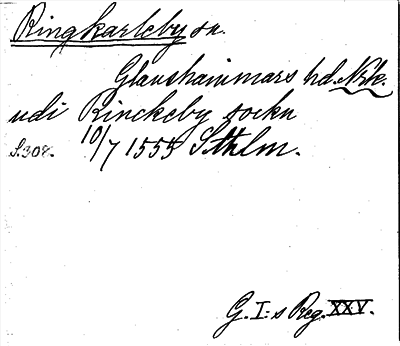 Ringkarleby sn.
Glanshammars hd. Nrk.
udi Rinckeby sockn
S. 308. 10/7 1555 Sthlm.
G. I:s Reg. XXV.